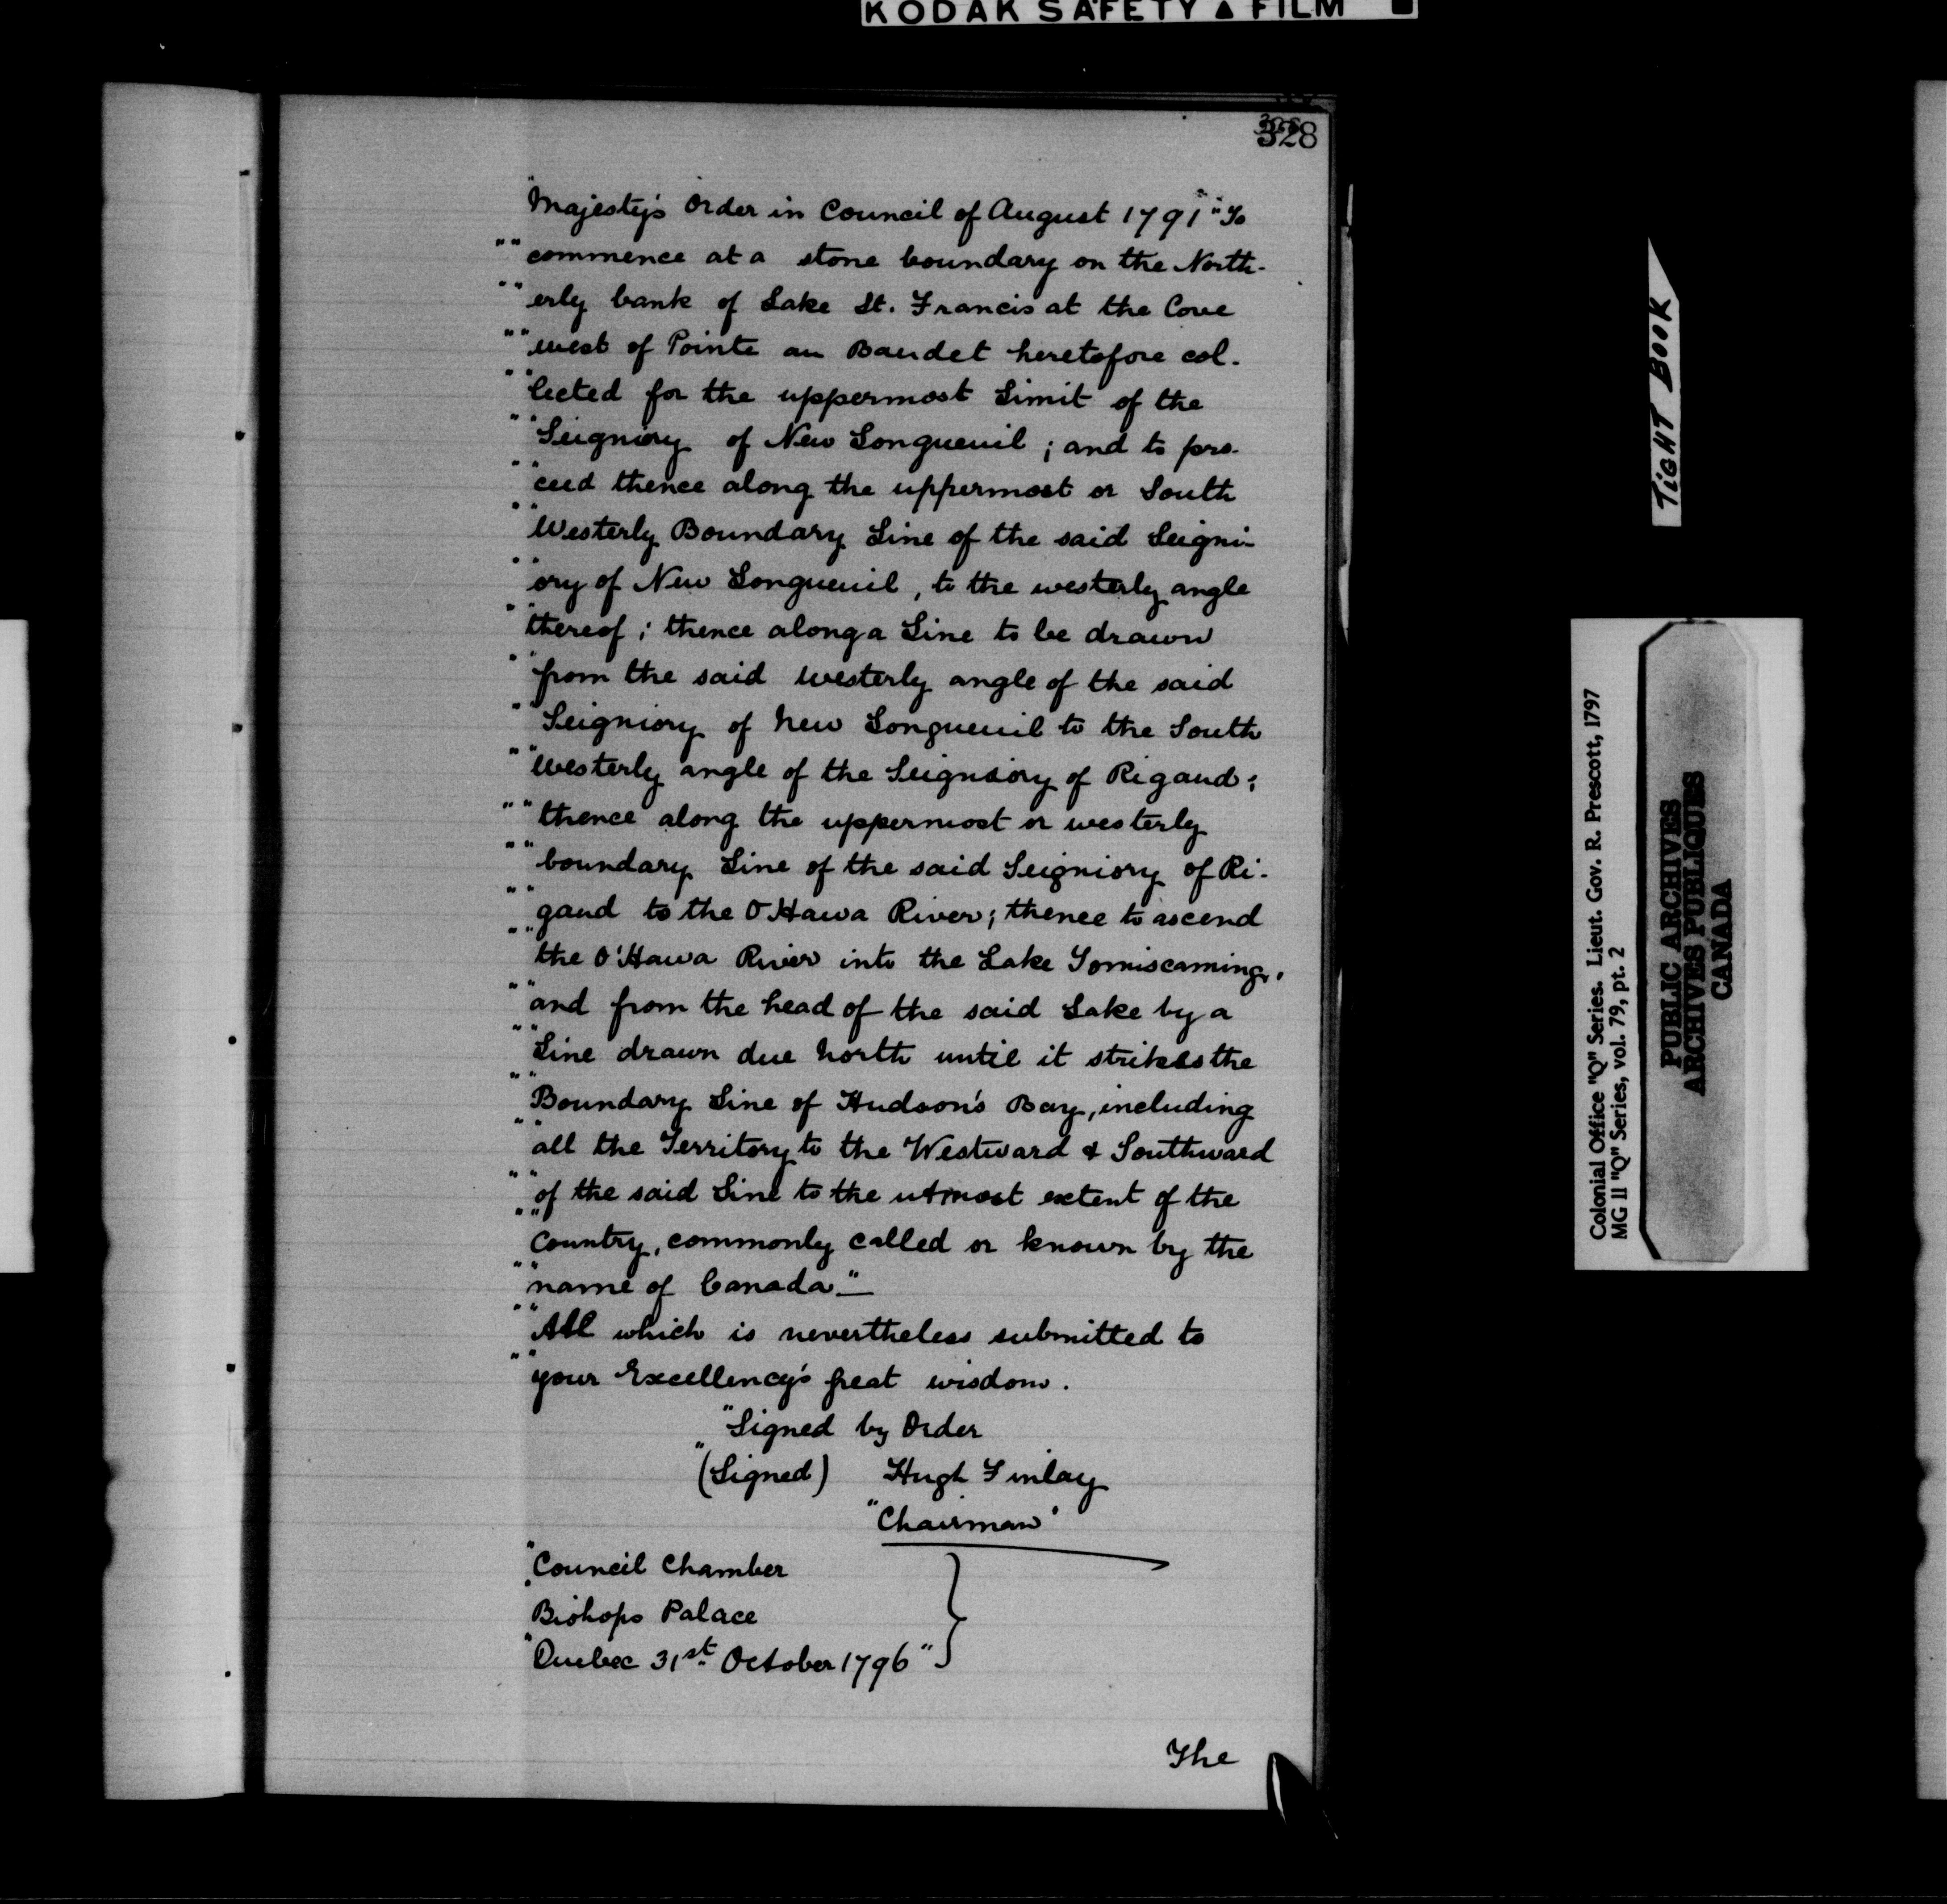 KODAK SAFETY ▲ FILM
328
"Majesty's Order in Council of August 1791" "To
" " commence at a stone boundary on the North-
" " erly bank of Lake St. Francis at the Cove
" " west of Pointe au Baudet heretofore col-
" " lected for the uppermost Limit of the
" " Seigniory of New Longueuil; and to pro-
" " ceed thence along the uppermost or South
" " Westerly Boundary Line of the said Seigni-
" " ory of New Longueuil, to the westerly angle
" " thereof; thence along a Line to be drawn
" " from the said westerly angle of the said
" " Seigniory of New Longueuil to the South
" " westerly angle of the Seigniory of Rigaud;
" " thence along the uppermost or westerly
" " boundary Line of the said Seigniory of Ri-
" " gaud to the O'Hawa River; thence to ascend
" " the O'Hawa River into the Lake Tomiscaming,
" " and from the head of the said Lake by a
" " Line drawn due North until it strikes the
" " Boundary Line of Hudson's Bay, including
" " all the Territory to the Westward & Southward
" " of the said Line to the utmost extent of the
" " Country, commonly called or known by the
" " name of Canada."—
" "All which is nevertheless submitted to
" "your Excellency's great wisdom.
"Signed by Order
" (Signed) Hugh Finlay
"Chairman"
"Council Chamber
"Bishops Palace
"Quebec 31st October 1796"
The
TIGHT BOOK
Colonial Office "Q" Series. Lieut. Gov. R. Prescott, 1797
MG 11 "Q" Series, vol. 79, pt. 2
PUBLIC ARCHIVES
ARCHIVES PUBLIQUES
CANADA